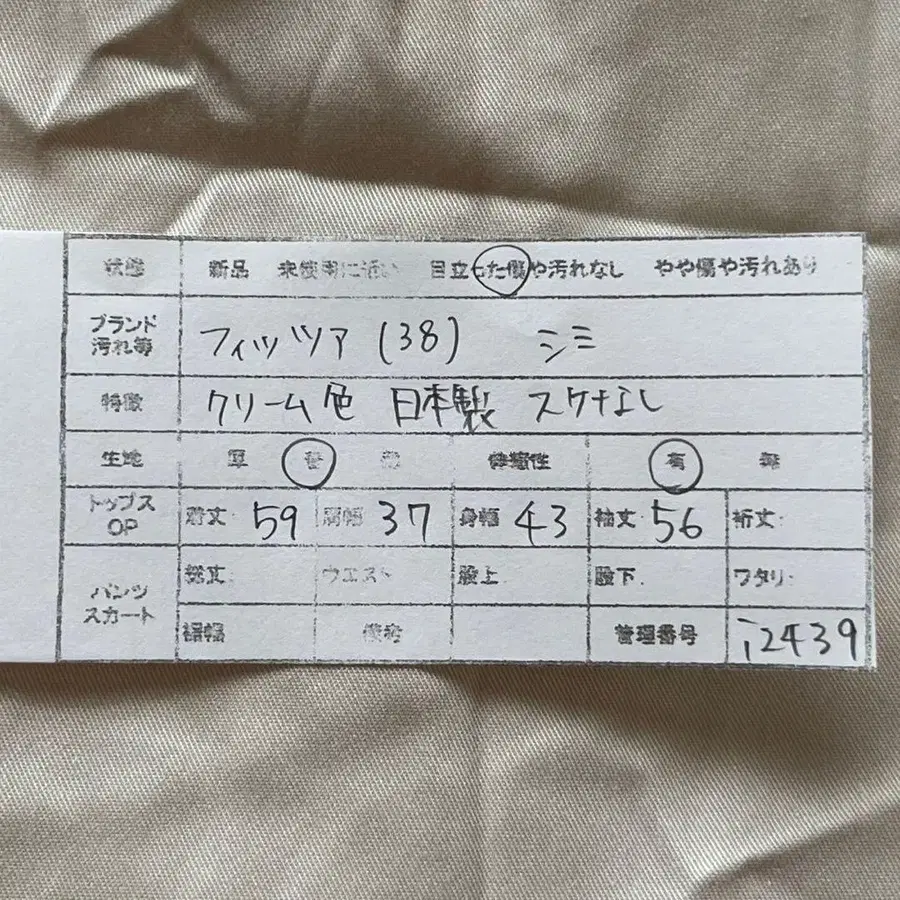 状態 新品 未使用に近い 目立った傷や汚れなし やや傷や汚れあり
ブランド
汚れ等 フィッツァ (38) シミ
特徴 クリーム色 日本製 スケなし
生地 厚 普 伸縮性 有 無
トップス
OP 着丈: 59 肩幅 37 身幅 43 袖丈: 56 裄丈:
パンツ
スカート 総丈: ウエスト 股上: 股下: ワタリ:
裾幅 備考 管理番号 i2439